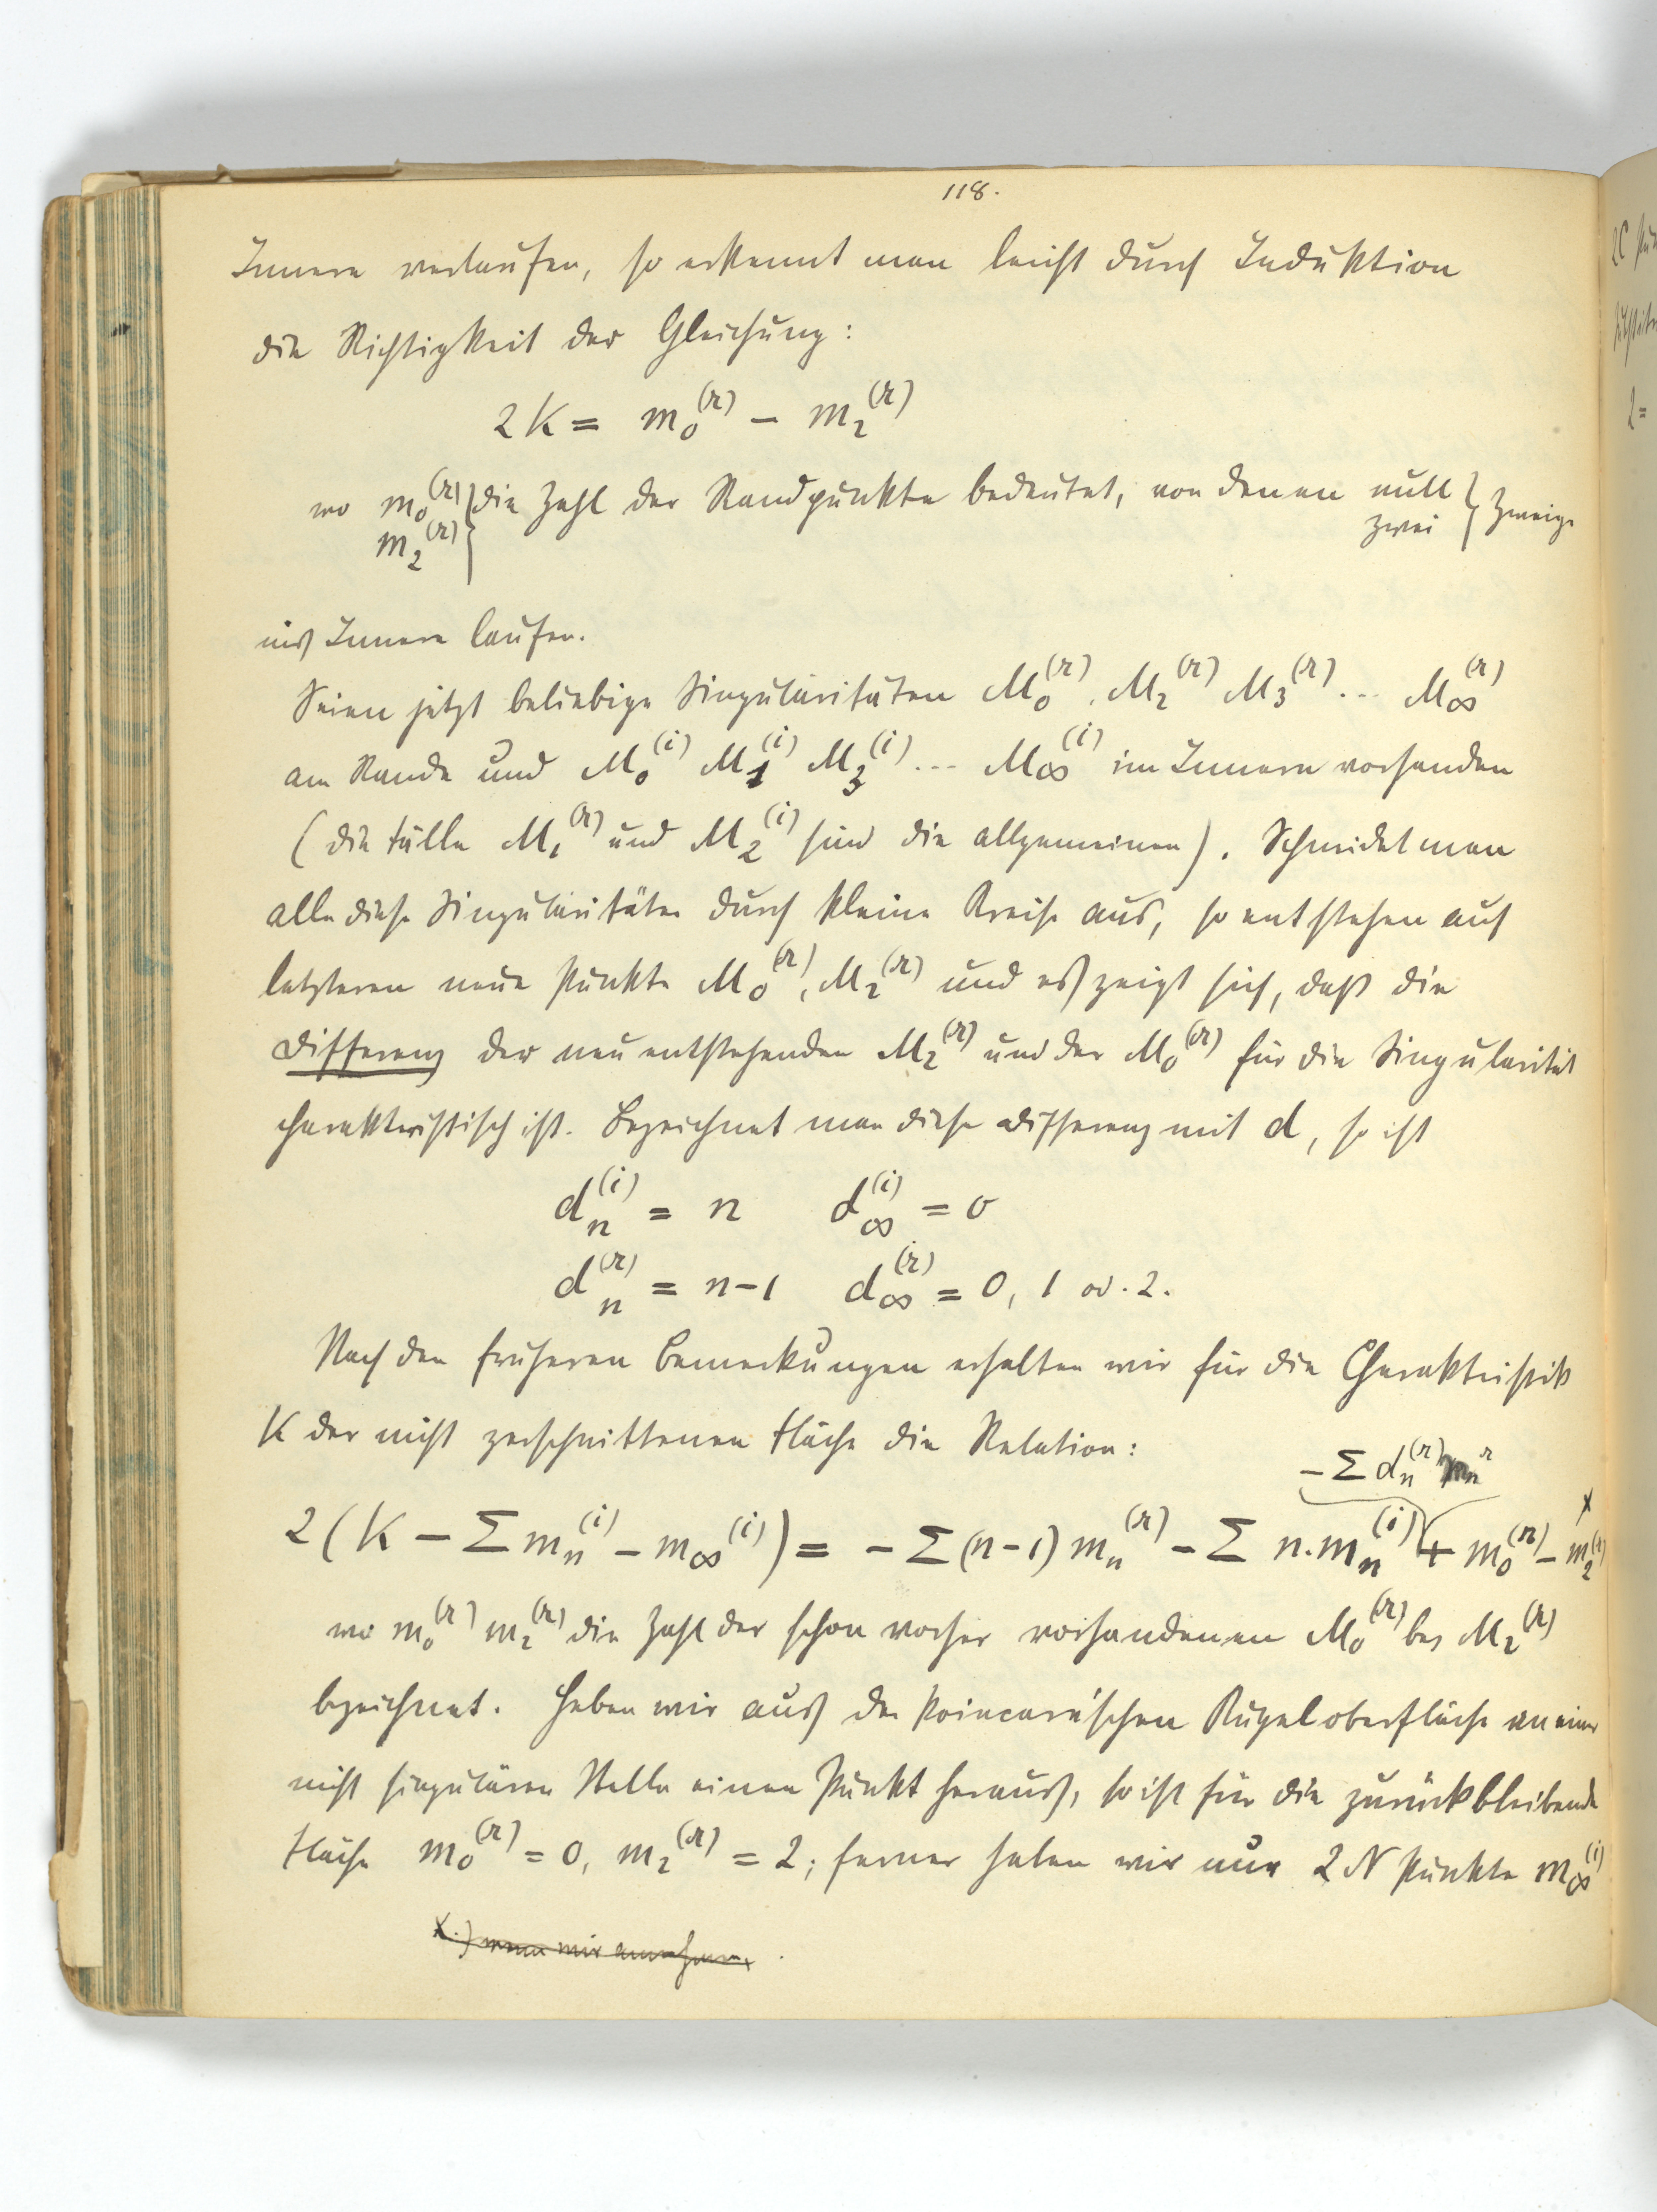 118.
Innere verlaufen, so erkennt man leicht durch Induktion
die Richtigkeit der Gleichung:
2K = m₀⁽ʳ⁾ – m₂⁽ʳ⁾
wo m₀⁽ʳ⁾ } die Zahl der Randpunkte bedeutet, von denen null } Zweige
m₂⁽ʳ⁾ } zwei }
ins Innere laufen.
Seien jetzt beliebige Singularitäten M₀⁽ʳ⁾, M₂⁽ʳ⁾ M₃⁽ʳ⁾ ... M∞⁽ʳ⁾
am Rande und M₀⁽ⁱ⁾ M₁⁽ⁱ⁾ M₃⁽ⁱ⁾ ... M∞⁽ⁱ⁾ im Innern vorhanden
(die Fälle M₁⁽ʳ⁾ und M₂⁽ⁱ⁾ sind die allgemeinen). Schneidet man
alle diese Singularitäten durch kleine Kreise aus, so entstehen auf
letzteren neue Punkte M₀⁽ʳ⁾, M₂⁽ʳ⁾ und es zeigt sich, daß die
Differenz der neu entstehenden M₂⁽ʳ⁾ und der M₀⁽ʳ⁾ für die Singularität
charakteristisch ist. Bezeichnet man diese Differenz mit d, so ist
dₙ⁽ⁱ⁾ = n d∞⁽ⁱ⁾ = 0
dₙ⁽ʳ⁾ = n–1 d∞⁽ʳ⁾ = 0, 1 od. 2.
Nach den früheren Bemerkungen erhalten wir für die Charakteristik
K der nicht zerschnittenen Fläche die Relation:
– Σ dₙ⁽ʳ⁾ mₙʳ
2(K – Σ mₙ⁽ⁱ⁾ – m∞⁽ⁱ⁾) = – Σ (n–1) mₙ⁽ʳ⁾ – Σ n. mₙ⁽ⁱ⁾ + m₀⁽ʳ⁾ – m₂⁽ʳ⁾ x
wo m₀⁽ʳ⁾ m₂⁽ʳ⁾ die Zahl der schon vorher vorhandenen M₀⁽ʳ⁾ bez M₂⁽ʳ⁾
bezeichnet. Heben wir aus der Poincaré'schen Kugeloberfläche an einer
nicht singulären Stelle einen Punkt heraus, so ist für die zurückbleibende
Fläche m₀⁽ʳ⁾ = 0, m₂⁽ʳ⁾ = 2; ferner haben wir nur 2N Punkte m∞⁽ⁱ⁾
x.) wenn wir annehmen,